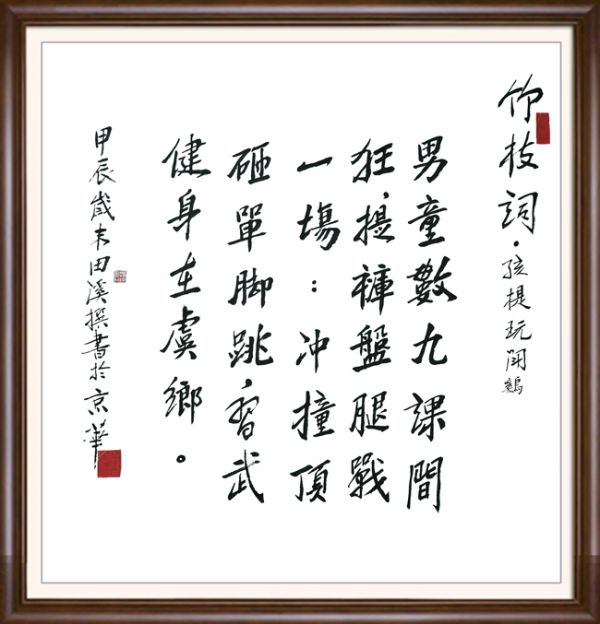 竹枝詞·孩提玩鬥鷄
男童數九課間
狂，提褲盤腿戰
一場：冲撞頂
砸單脚跳，習武
健身在虞鄉。
甲辰歲末田溪撰書於京華